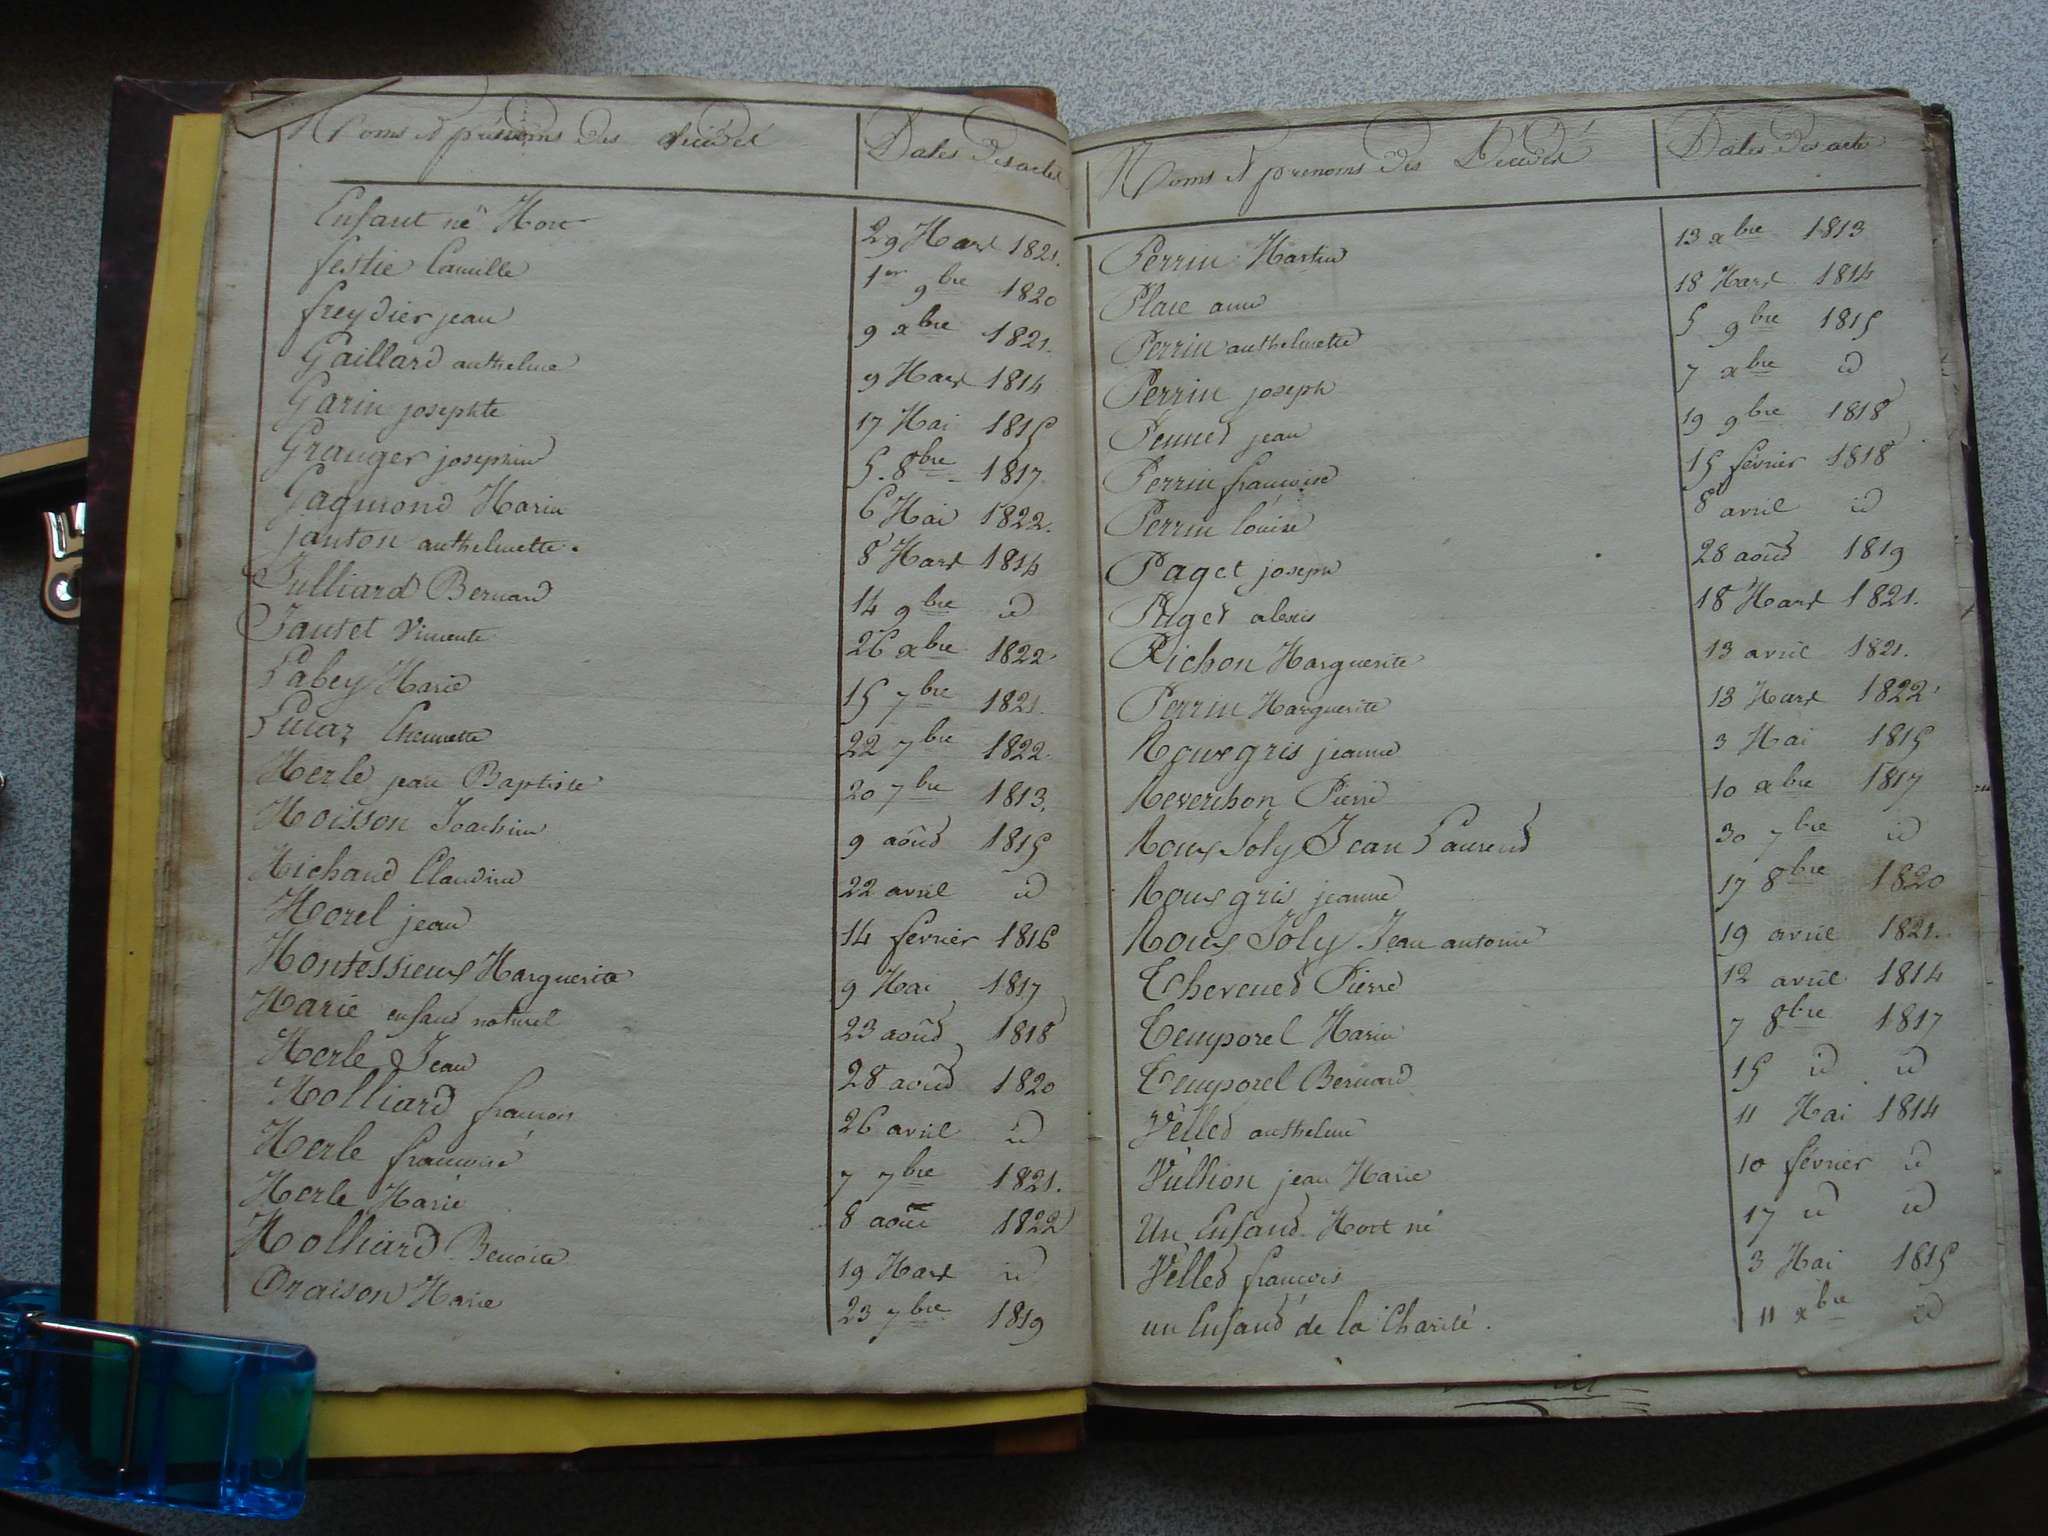 Noms et prénoms des décédés Dates des actes
Enfant né Mort 29 Mars 1821.
festie Camille 1er 9bre 1820
freydier jean 9 xbre 1821.
Gaillard anthelme 9 Mars 1814
Garin josephte 17 Mai 1815
Granger josephine 5. 8bre 1817.
Gagmond Marie 6 Mai 1822.
janton anthelmette. 8 Mars 1814
Julliard Bernard 14 9bre id
Jantet Vincente 26 xbre 1822.
Labey Marie 15 7bre 1821.
Lucaz 22 7bre 1822.
Merle jean Baptiste 20 7bre 1813.
Moisson Joachim 9 août 1815
Michaud Claudine 22 avril id
Morel jean 14 fevrier 1816
Montessieux Marguerite 9 Mai 1817
Marie enfant naturel 23 août 1818
Merle Jean 28 août 1820
Molliard francois 26 avril id
Merle francoise 7 7bre 1821.
Merle Marie 8 août 1822
Molliard Benoite 19 Mars id
Oraison Marie 23 7bre 1819
Noms et prenoms des Décédés Dates des actes
Perrin Martin 13 xbre 1813
Place anne 18 Mars 1814
Perrin anthelmette 5 9bre 1815
Perrin joseph 7 xbre id
Pennet jean 19 9bre 1818
Perrin francoise 15 février 1818
Perrin louise 8 avril id
Paget joseph 28 août 1819
Paget alexis 18 Mars 1821.
Pichon Marguerite 13 avril 1821.
Perrin Marguerite 13 Mars 1822.
Roux gris jeanne 3 Mai 1815
Reverchon Pierre 10 xbre 1817
Roux Joly Jean Laurend 30 7bre id
Roux gris jeanne 17 8bre 1820
Roux Joly Jean antoine 19 avril 1821.
Thevened Pierre 12 avril 1814
Temporel Marie 7 8bre 1817
Temporel Bernard 15 id id
Velled anthelme 11 Mai 1814
Vullion jean Marie 10 février id
Un Enfand Mort né 17 id id
Velled francois 3 Mai 1815
un Enfand de la Charité. 11 xbre id